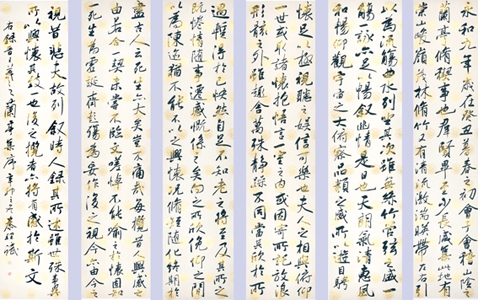 永和九年歲在癸丑暮春之初會于會稽山陰之
蘭亭脩禊事也群賢畢至少長咸集此地有
崇山峻嶺茂林脩竹又有清流激湍暎帶左右引
以為流觴曲水列坐其次雖無絲竹管弦之盛一
觴一詠亦足以暢敘幽情是日也天朗氣清惠風
和暢仰觀宇宙之大俯察品類之盛所以遊目騁
懷足以極視聽之娛信可樂也夫人之相與俯仰
一世或取諸懷抱悟言一室之內或因寄所託放浪
形骸之外雖趣舍萬殊靜躁不同當其欣於所
遇暫得於己快然自足不知老之將至及其所之
既惓情隨事遷感慨係之矣向之所欣俛仰之間
以為陳迹猶不能不以之興懷況脩短隨化終期於
盡古人云死生亦大矣豈不痛哉每攬昔人興感之
由若合一契未嘗不臨文嗟悼不能喻之於懷固知
一死生為虛誕齊彭殤為妄作後之視今亦由今之
視昔悲夫故列敘時人錄其所述雖世殊事異
所以興懷其致一也後之攬者亦將有感於斯文
右錄王羲之蘭亭集序